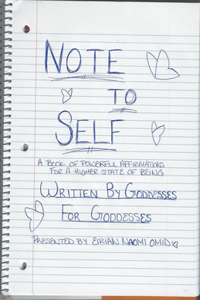 NOTE
TO
SELF
A BOOK OF POWERFUL AFFIRMATIONS
FOR A HIGHER STATE OF BEING
WRITTEN BY GODDESSES
FOR GODDESSES
PRESENTED BY NAOMI OMID